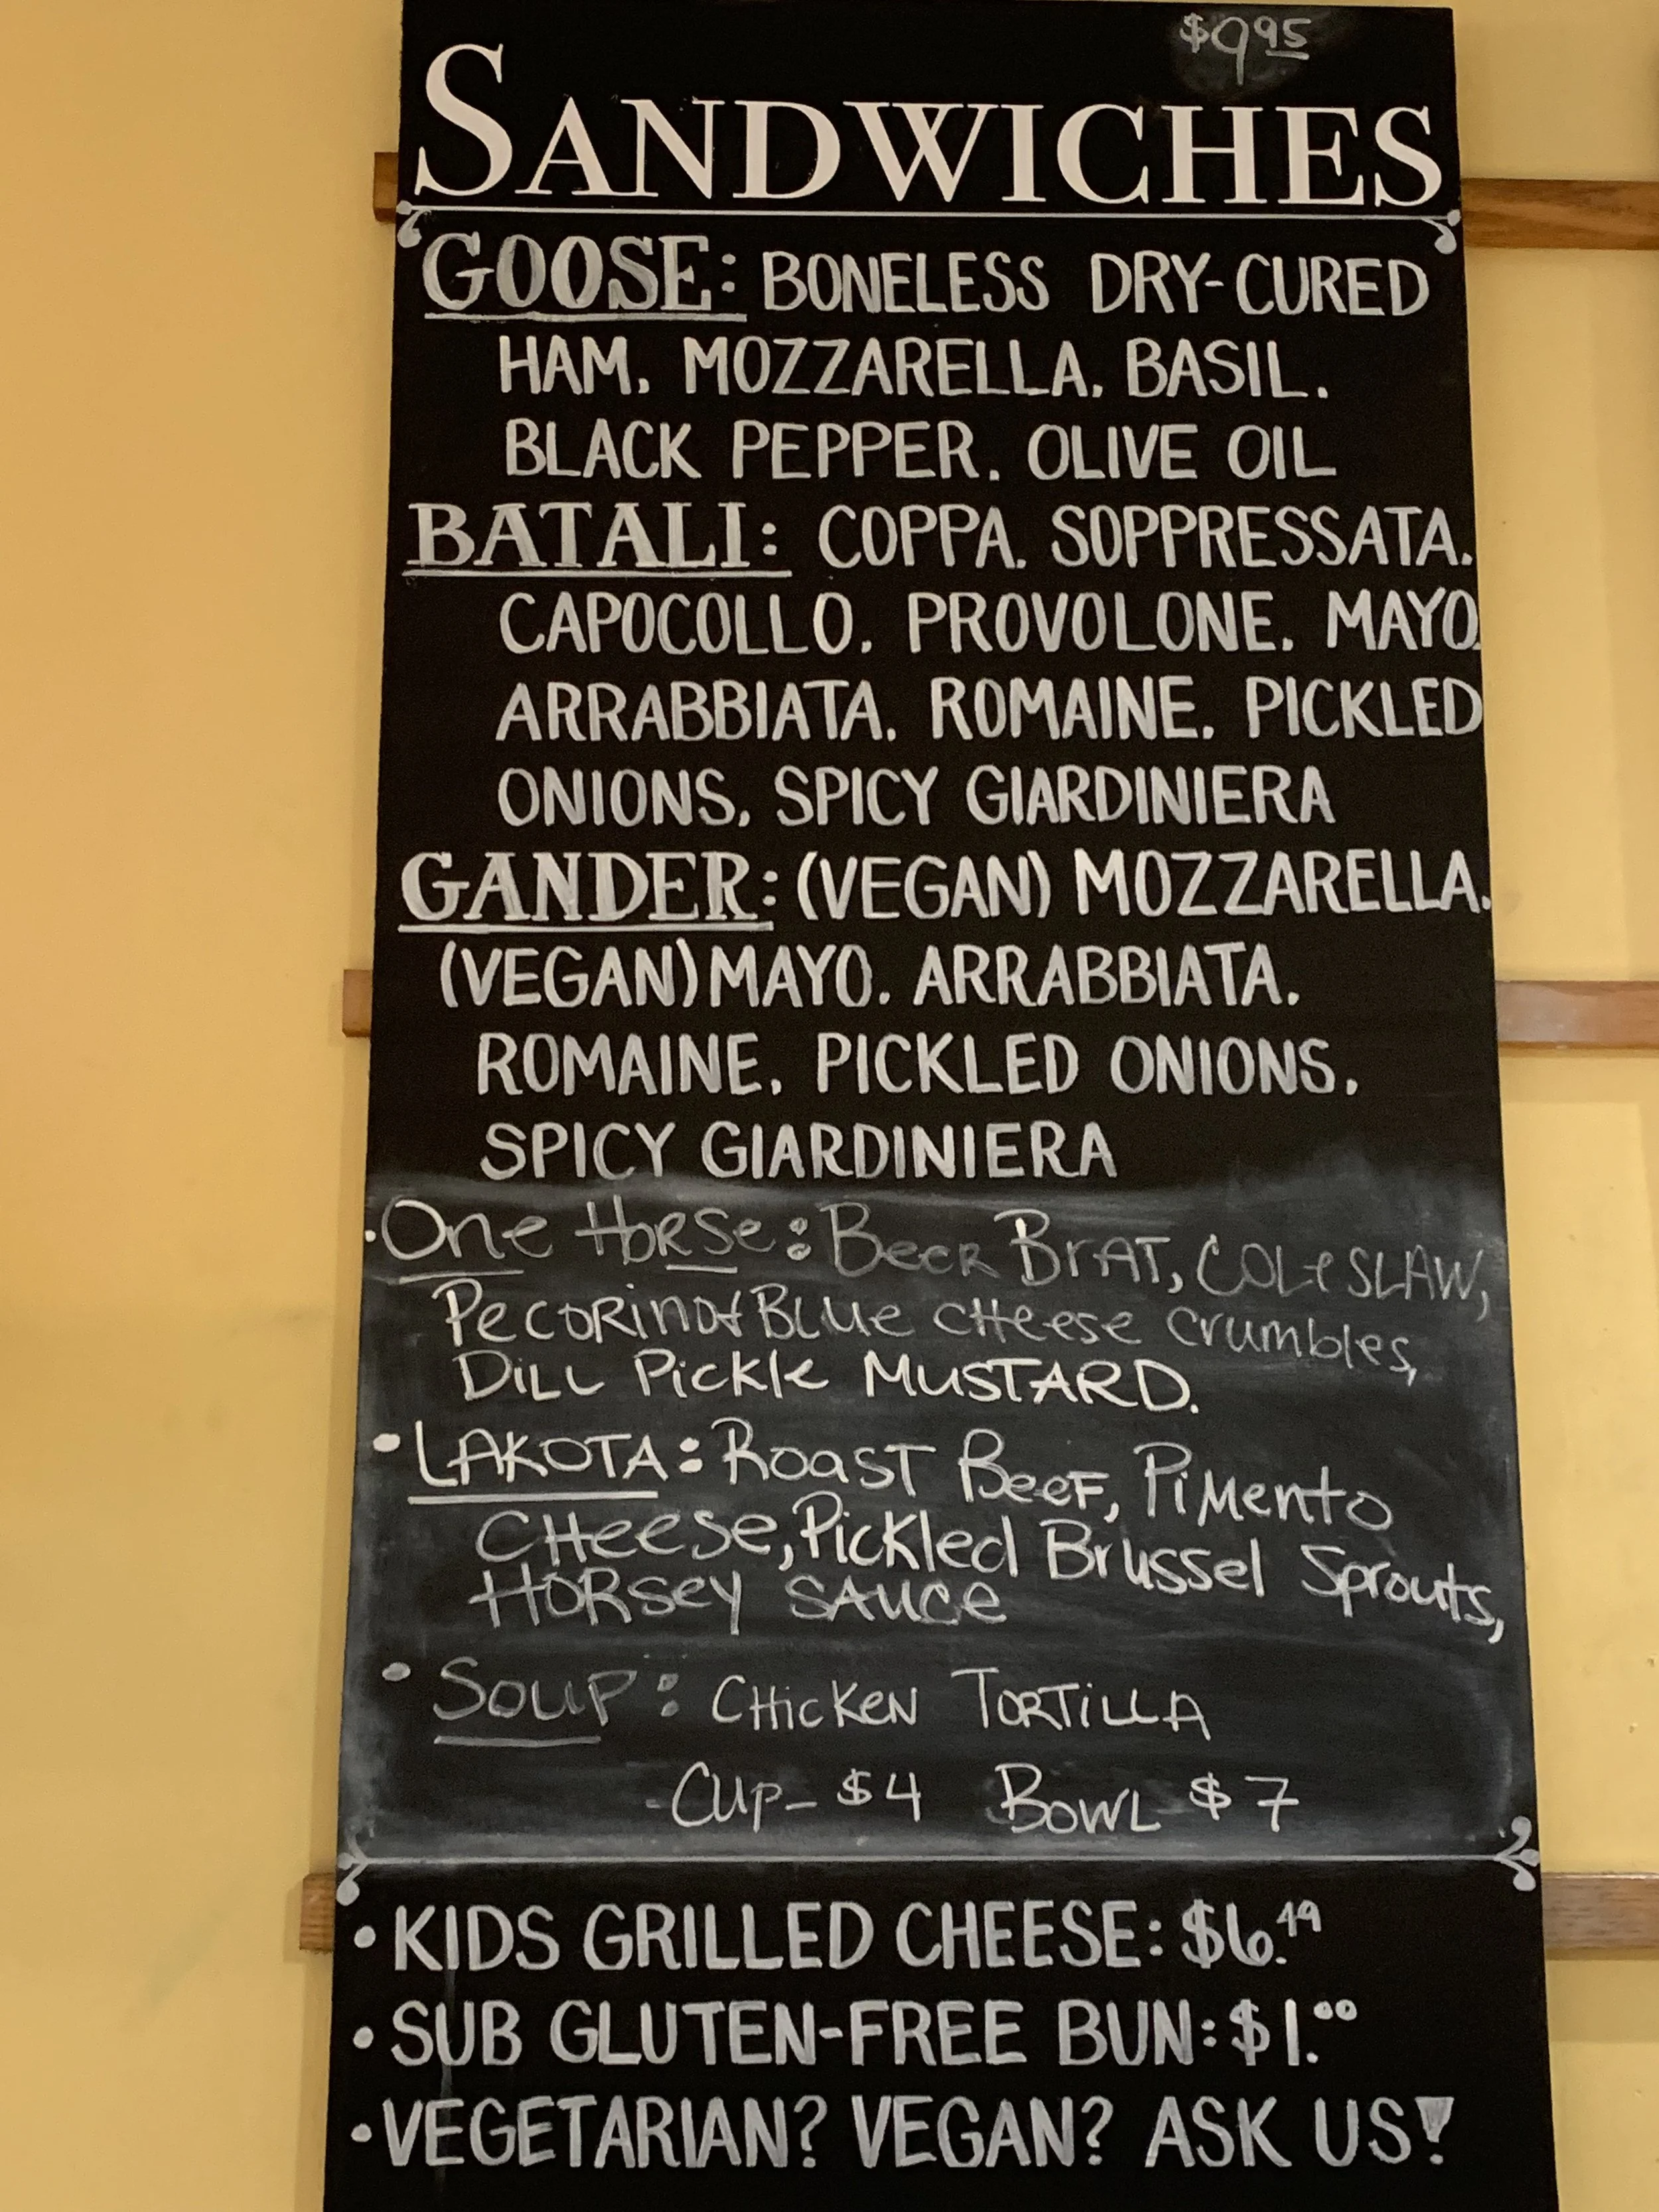 $9.95
SANDWICHES
GOOSE: BONELESS DRY-CURED
HAM, MOZZARELLA, BASIL,
BLACK PEPPER, OLIVE OIL
BATALI: COPPA, SOPPRESSATA,
CAPOCOLLO, PROVOLONE, MAYO,
ARRABBIATA, ROMAINE, PICKLED
ONIONS, SPICY GIARDINIERA
GANDER: (VEGAN) MOZZARELLA,
(VEGAN) MAYO, ARRABBIATA,
ROMAINE, PICKLED ONIONS,
SPICY GIARDINIERA
• One Horse: Beer Brat, Coleslaw,
Pecorino & Blue Cheese Crumbles,
Dill Pickle Mustard.
• Lakota: Roast Beef, Pimento
Cheese, Pickled Brussel Sprouts,
Horsey Sauce
• Soup: Chicken Tortilla
- Cup - $4 Bowl $7
• KIDS GRILLED CHEESE: $6.49
• SUB GLUTEN-FREE BUN: $1.00
• VEGETARIAN? VEGAN? ASK US!